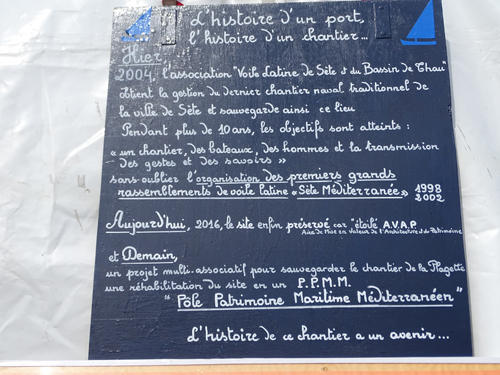 L'histoire d'un port,
l'histoire d'un chantier...
Hier
2004, l'association "Voile Latine de Sète et du Bassin de Thau"
obtient la gestion du dernier chantier naval traditionnel de
la ville de Sète et sauvegarde ainsi ce lieu
Pendant plus de 10 ans, les objectifs sont atteints :
« un chantier, des bateaux, des hommes et la transmission
des gestes et des savoirs »
sans oublier l'organisation des premiers grands
rassemblements de voile latine « Sète Méditerranée » 1998
2002
Aujourd'hui, 2016, le site enfin préservé car "étoilé" A.V.A.P.
Aire de Mise en Valeur de l'Architecture et du Patrimoine
et Demain,
un projet multi-associatif pour sauvegarder le chantier de la Plagette
une réhabilitation du site en un P.P.M.M.
"Pôle Patrimoine Maritime Méditerranéen"
L'histoire de ce chantier a un avenir...